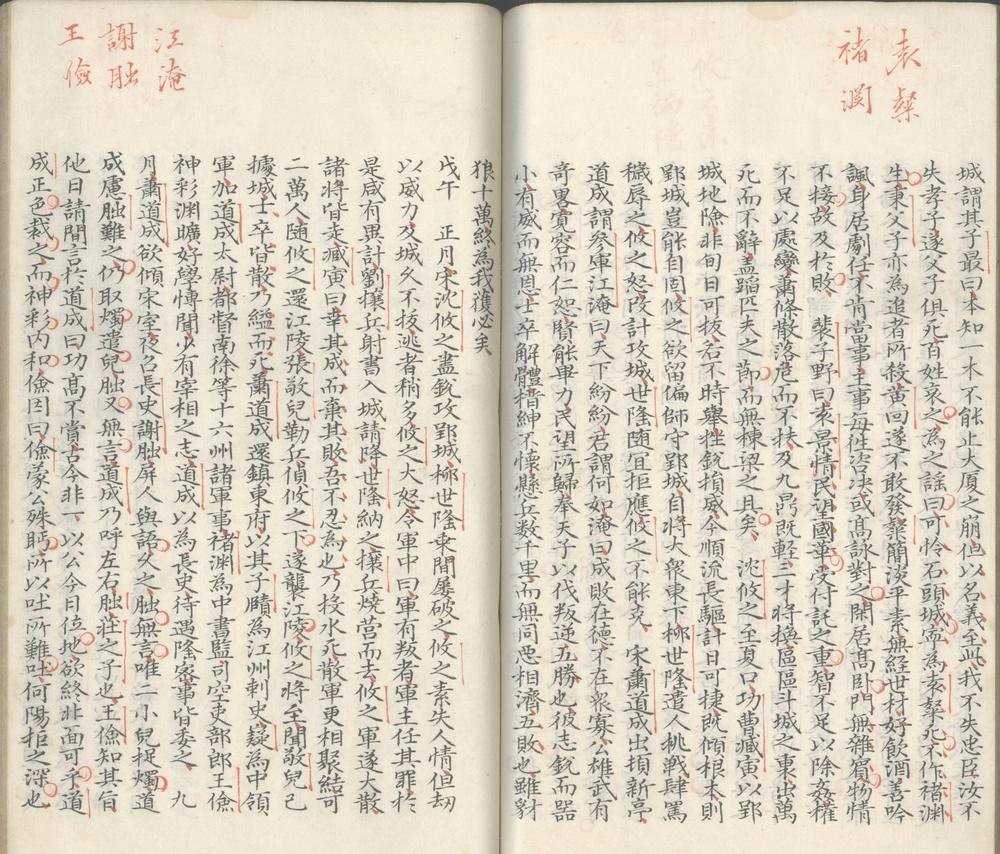 袁粲
褚淵
城謂其子最曰本知一木不能止大厦之崩但以名義至此我不失忠臣汝不
失孝子遂父子俱死百姓哀之為之謡曰可怜石頭城寧為袁粲死不作褚淵
生秉父子亦為追者所殺黄回遂不敢發粲簡淡平素無経世材好飲酒善吟
諷身居劇任不肯當事主事每徃咨决或髙詠對之閑居髙卧門無雜賓物情
不接故及於敗裴子野曰袁景情民望國華受付託之重智不足以除姦權
不足以處變蕭條散落危而不扶及九鼎既輕三才將換區區斗城之裏出萬
死而不辭盖蹈匹夫之節而無棟梁之具矣沈攸之至夏口功曹臧寅以郢
城地險非旬日可拔若不時舉挫銳損威今順流長驅計日可捷既傾根本則
郢城豈能自固攸之欲留偏師守郢城自將大衆東下栁世隆遣人桃戰肆罵
穢辱之攸之怒改計攻城世隆随宜拒應攸之不能克宋蕭道成出頓新亭
道成謂叅軍江淹曰天下紛紛君謂何如淹曰成敗在德不在衆寡公雄武有
竒畧寛容而仁恕賢能畢力民望所歸奉天子以伐叛逆五勝也彼志銳而器
小有威而無恩士卒解體搢紳不懷懸兵数千里而無同悪相濟五敗也雖豺
狼十萬終為我獲必矣
江淹
謝朏
王儉
戊午　正月宋沈攸之盡銳攻郢城栁世隆乗間屢破之攸之素失人情但刼
以威力及城久不拔逃者稍多攸之大怒令軍中曰軍有叛者軍主任其罪於
是咸有異計劉攘兵射書入城請降世隆納之攘兵燒营而去攸之軍遂大散
諸將皆走臧寅曰幸其成而棄其敗吾不忍為也乃投水死散軍更相聚結可
二萬人随攸之還江陵張敬兒勒兵偵攸之下遂襲江陵攸之將至聞敬兒已
據城士卒皆散乃縊而死蕭道成還鎮東府以其子賾為江州剌史嶷為中領
軍加道成太尉都督南徐等十六州諸軍事褚淵為中書監司空吏部郎王儉
神彩渊曠好學愽聞少有宰相之志道成以為長史待遇隆宻事皆委之　九
月蕭道成欲傾宋室夜召長史謝朏屏人與語久之朏無言唯二小兒捉燭道
成慮朏難之仍取燭遣兒朏又無言道成乃呼左右朏荘之子也王儉知其㫖
他日請間言扵道成曰功髙不賞古今非一以公今日位地欲終北面可乎道
成正色裁之而神彩内和儉因曰儉蒙公殊眄所以吐所難吐何陽拒之深也